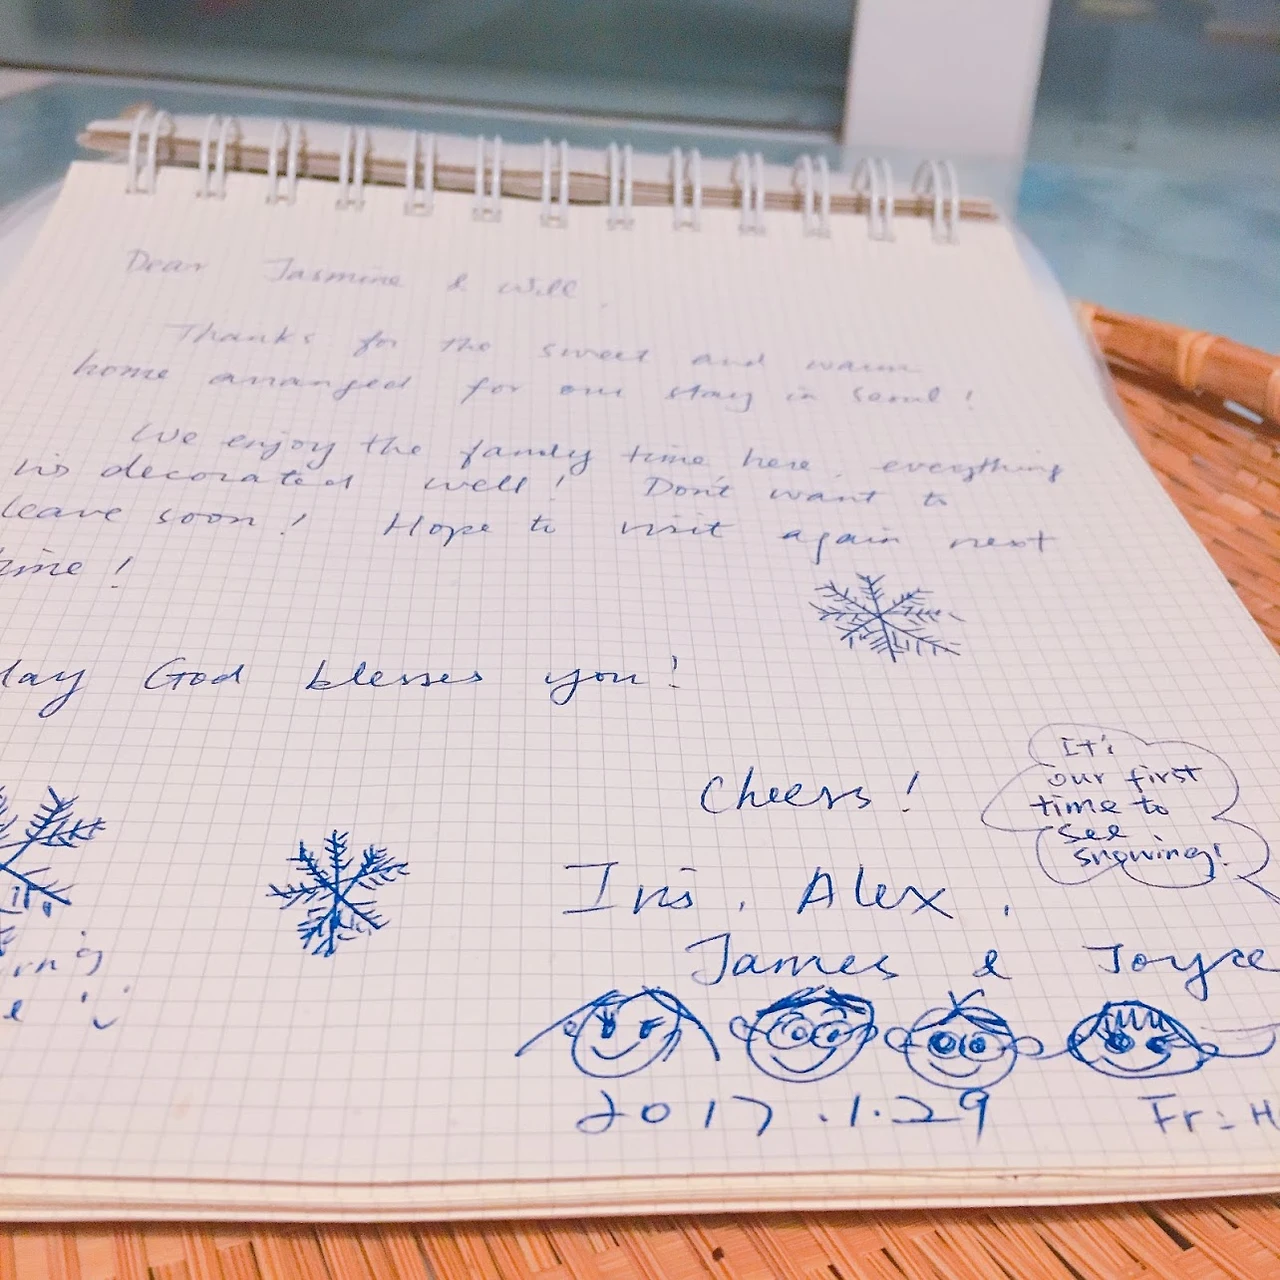 Dear Jasmine & Will,
Thanks for the sweet and warm
home arranged for our stay in Seoul!
We enjoy the family time here, everything
is decorated well! Don't want to
leave soon! Hope to visit again next
time!
May God blesses you!
Cheers!
It's
our first
time to
see
snowing!
Iris, Alex,
James & Joyce
2017.1.29
Fr: H